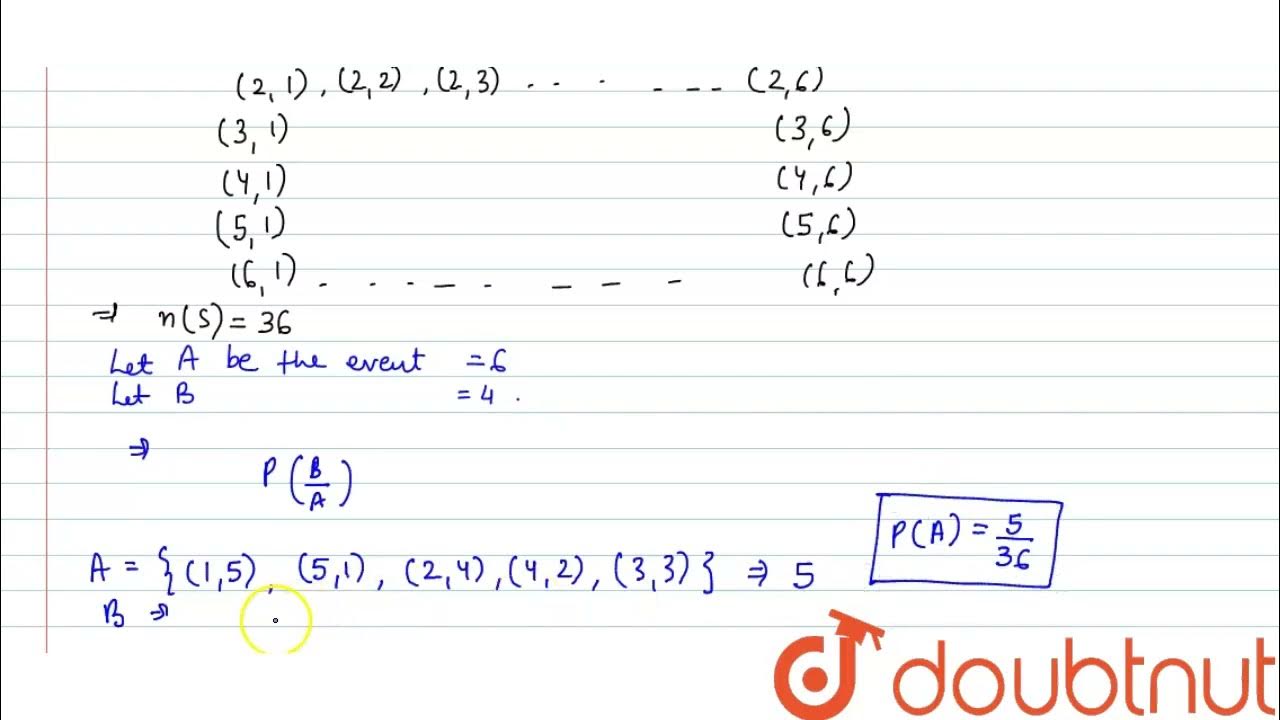 (2,1) , (2,2) , (2,3) -- - - - -- (2,6)
(3,1) (3,6)
(4,1) (4,6)
(5,1) (5,6)
(6,1) - - - - - - - - (6,6)
⇒ n(S) = 36
Let A be the event = 6
Let B = 4 .
⇒
P(B/A)
P(A) = 5/36
A = {(1,5) , (5,1) , (2,4) , (4,2) , (3,3)} ⇒ 5
B ⇒
doubtnut